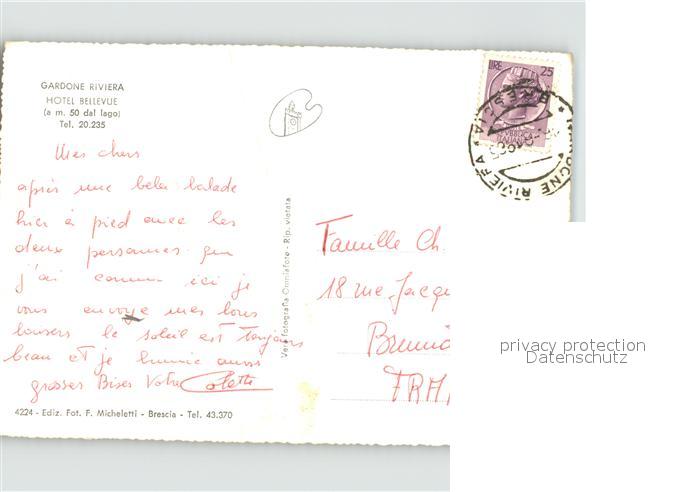 GARDONE RIVIERA
HOTEL BELLEVUE
(a m. 50 dal lago)
Tel. 20.235
Mes chers
après une belle balade
hier à pied avec les
deux personnes que
j'ai connu ici je
vous envoye mes bons
baisers le soleil est toujours
beau et je bronze aussi
grosses Bises Votre Colette
4224 - Ediz. Fot. F. Micheletti - Brescia - Tel. 43.370
Vera fotografia Omniafoto - Rip. vietata
LIRE 25
REPUBBLICA
ITALIANA
GARDONE RIVIERA * BRESCIA *
Famille Ch.
18 rue Jacqu
FRA
privacy protection
Datenschutz